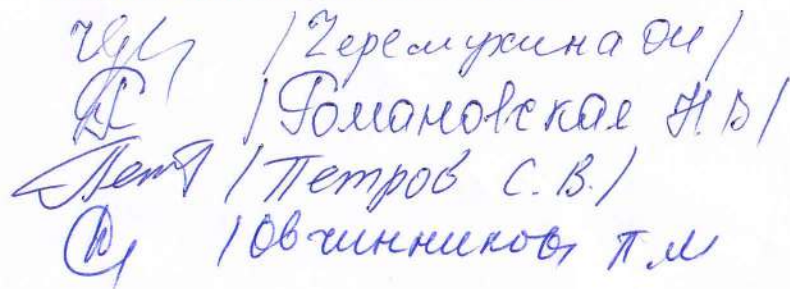 /Черемухина ОИ/
/Романовская Н В/
/Петров С. В./
/Овчинников П М